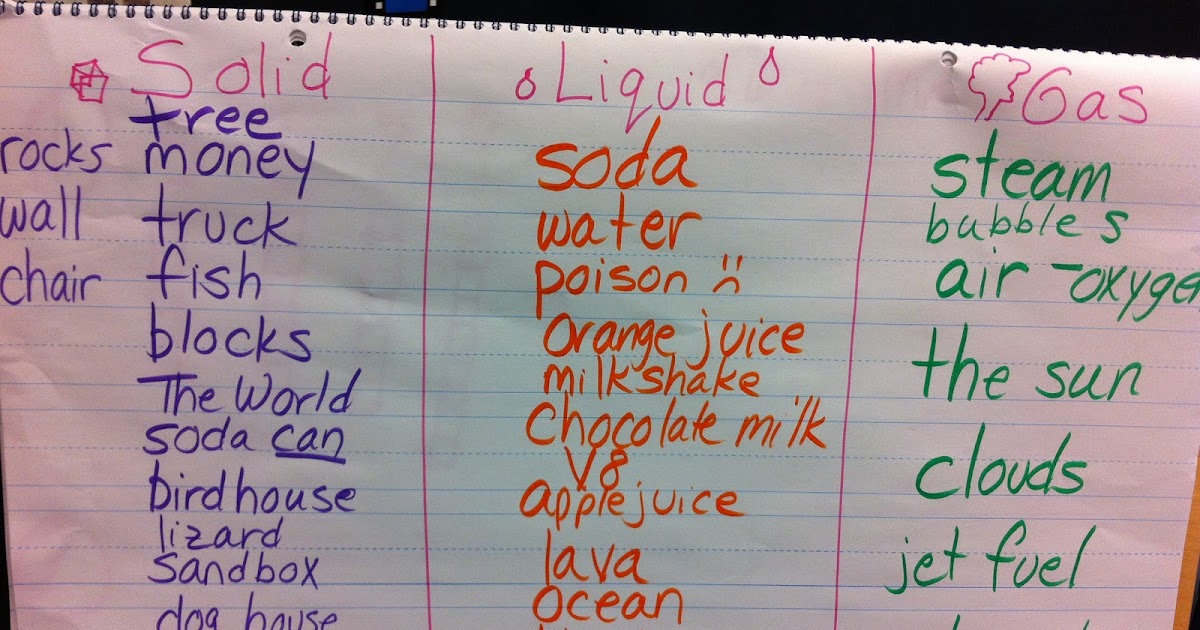 Solid
tree
rocks money
wall truck
chair fish
blocks
The World
soda can
birdhouse
lizard
sandbox
dog house
Liquid
soda
water
poison
orange juice
milkshake
Chocolate milk
V8
apple juice
lava
ocean
Gas
steam
bubbles
air - oxygen
the sun
clouds
jet fuel